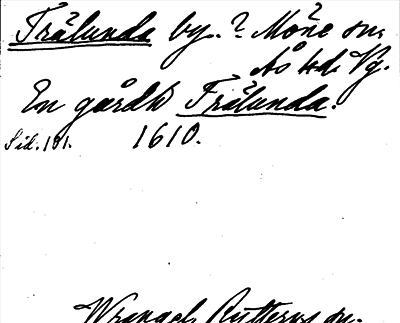 Trälunda by. ? Möne sn.
Ås hd. Vg.
En gårdh Trålunda.
Sid. 191. 1610.
Wrangel, Rutterus